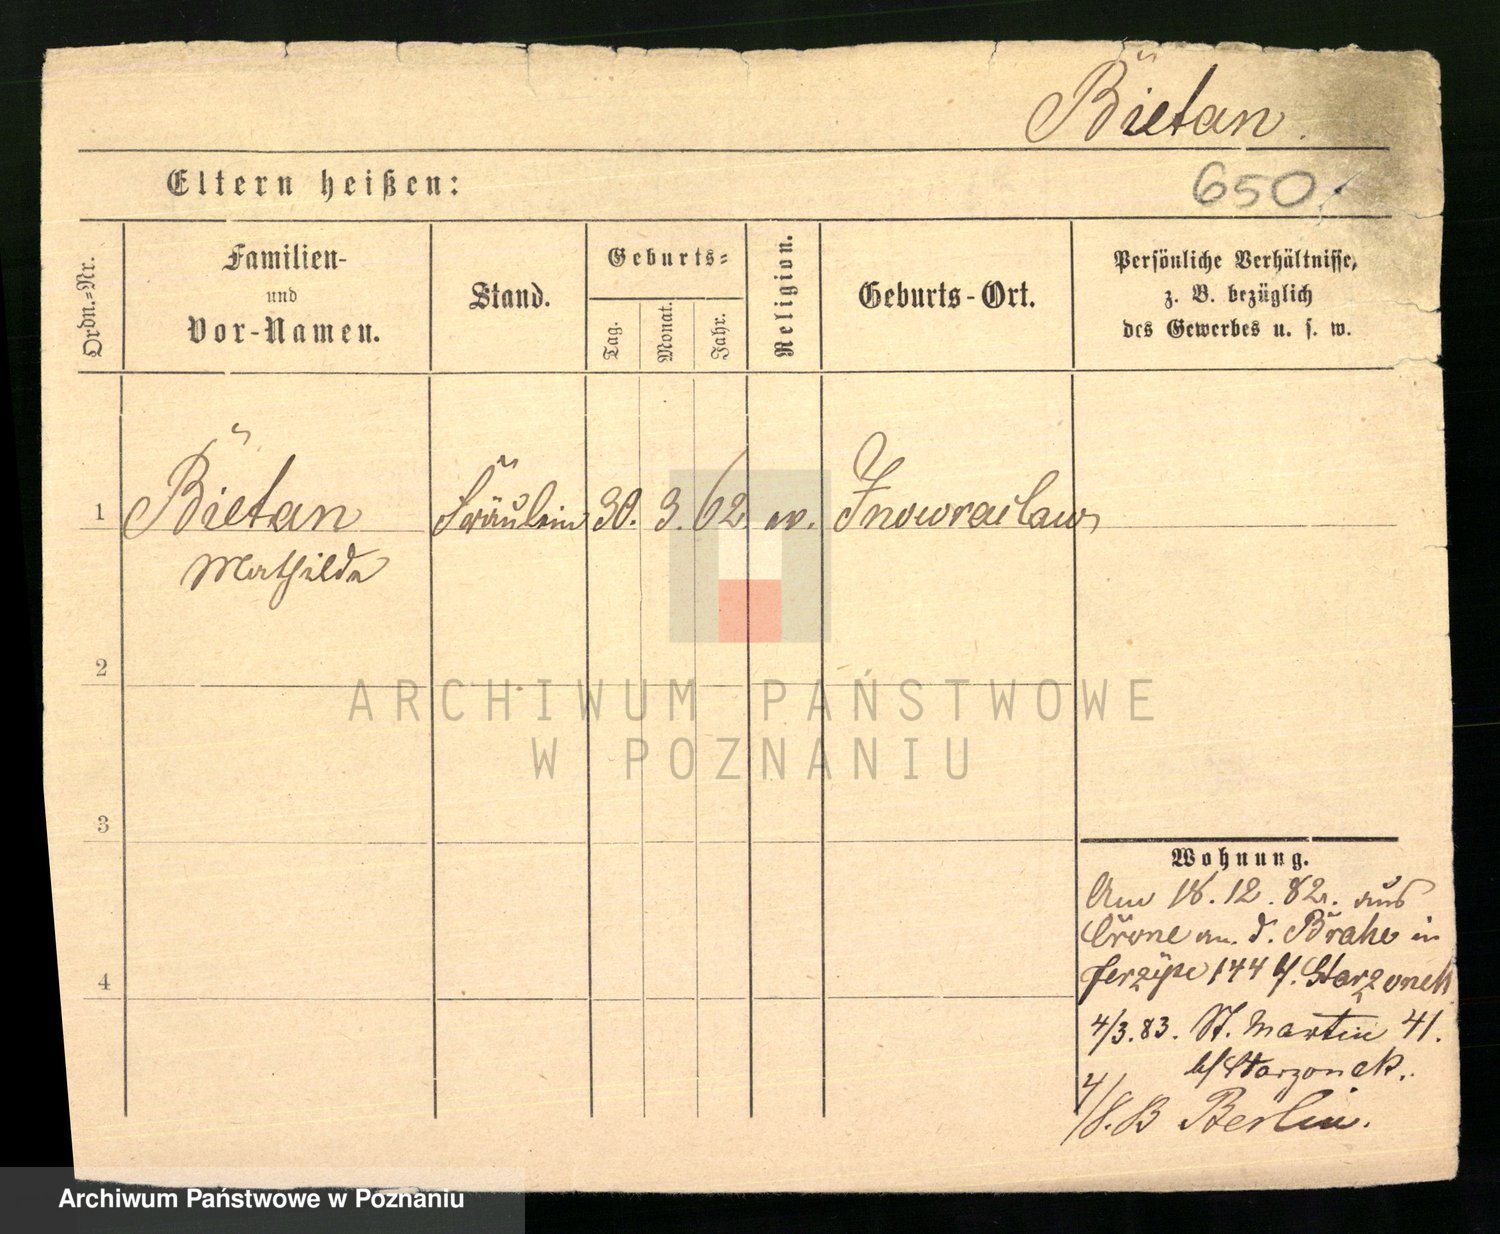 Bietan.
Eltern heißen:
650.
Ordn.-Nr.
Familien-
und
Vor-Namen.
Stand.
Geburts-
Tag.
Monat.
Jahr.
Religion.
Geburts-Ort.
Persönliche Verhältnisse,
z. B. bezüglich
des Gewerbes u. s. w.
1 Bietan Fräulein 30. 3. 62 ev. Inowraclaw
Mathilde
2
3
4
Wohnung.
Am 18.12.82. aus
Crone an d. Brahe in
Jerzyce 144 b/. Starzonek
4/3.83. St. Martin 41.
b/ Starzonek.
4/8.83 Berlin.
ARCHIWUM PAŃSTWOWE
W POZNANIU
Archiwum Państwowe w Poznaniu